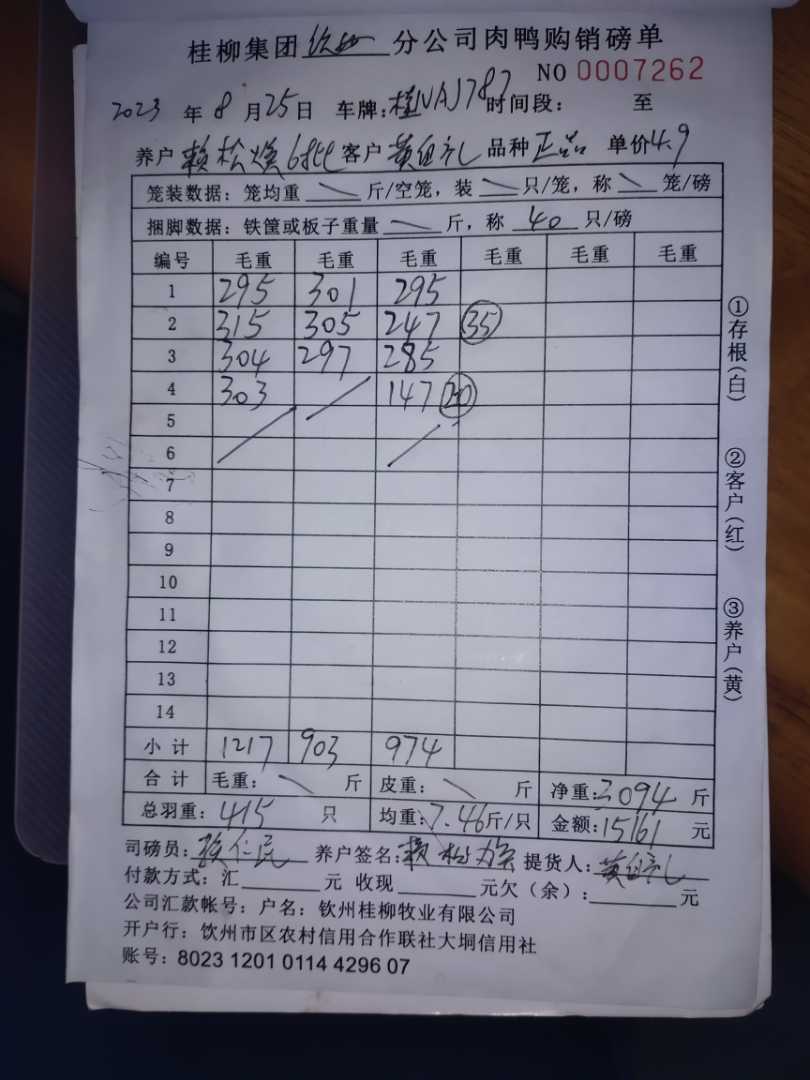 桂柳集团钦州分公司肉鸭购销磅单
NO 0007262
2023 年 8 月 25 日 车牌: 时间段: 至
养户 赖松焕6批 客户 黄 礼 品种 正品 单价 4.9
笼装数据: 笼均重 \ 斤/空笼, 装 \ 只/笼, 称 \ 笼/磅
捆脚数据: 铁筐或板子重量 \ 斤, 称 40 只/磅
编号 毛重 毛重 毛重 毛重 毛重 毛重
1 295 301 295
2 315 305 247 35
3 304 297 285
4 303 147 20
5
6
7
8
9
10
11
12
13
14
小计 1217 903 974
合计 毛重: \ 斤 皮重: \ 斤 净重: 3094 斤
总羽重: 415 只 均重: 7.46 斤/只 金额: 15161 元
司磅员: 仁民 养户签名: 赖松焕 提货人: 黄 礼
付款方式: 汇 元 收现 元欠(余): 元
公司汇款帐号: 户名: 钦州桂柳牧业有限公司
开户行: 钦州市区农村信用合作联社大垌信用社
账号: 8023 1201 0114 4296 07
①存根(白)
②客户(红)
③养户(黄)